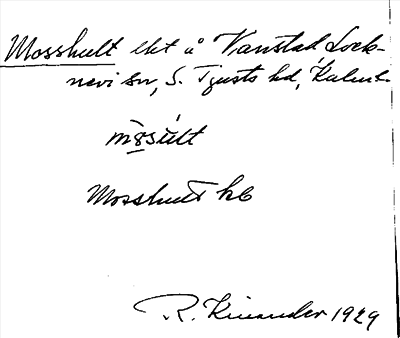 Mosshult lht å Vanstad, Lock-
nevi sn, S. Tjusts hd, Kalm. l.
Mosshult hb
R. Kinander 1929